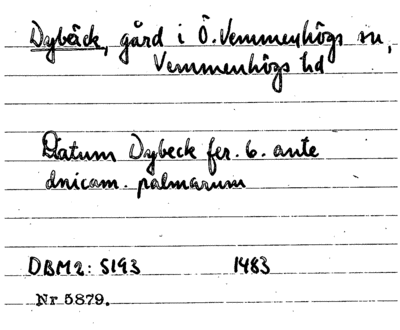 Dybäck, gård i Ö. Vemmenhögs sn,
Vemmenhögs hd
Datum Dybeck fer. 6. ante
dnicam. palmarum
DBM2: 5193 1483
Nr 5879.